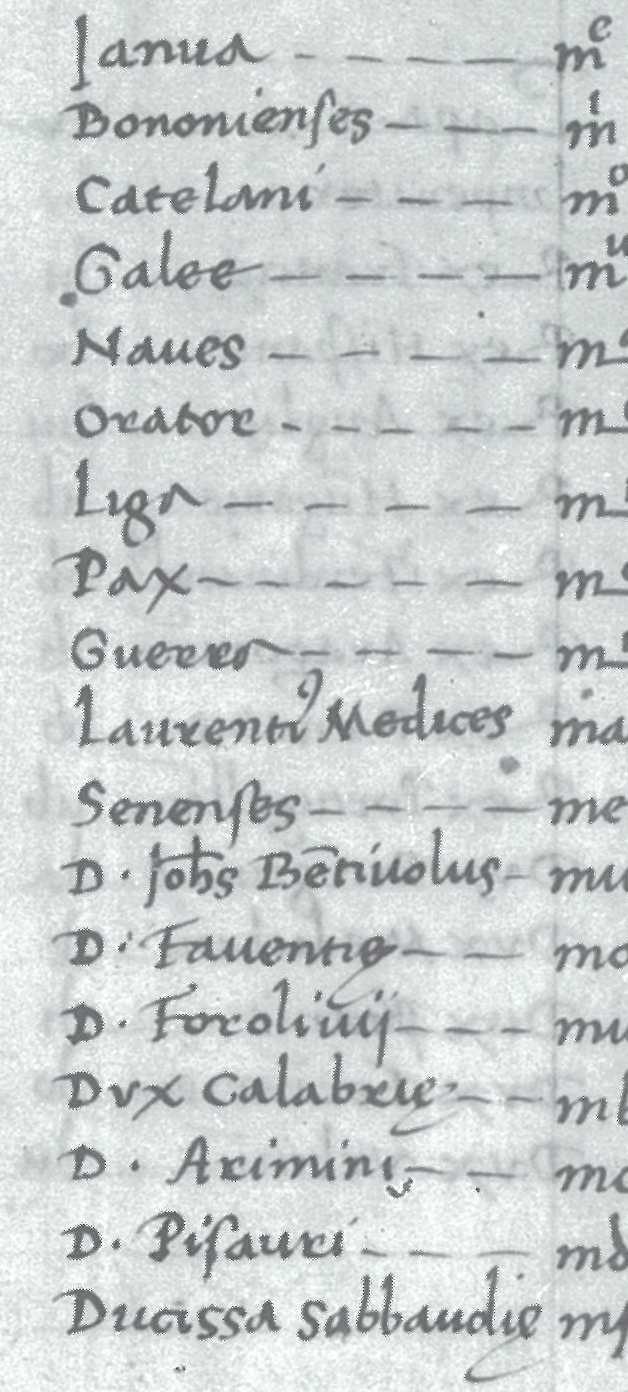 Janua - - - - m^e
Bononienses - - - m^i
Catelani - - - m^o
Galee - - - - m^u
Naues - - - - m
Orator - - - - - m
Liga - - - - m
Pax - - - - - m
Guerra - - - - m
Laurenti⁹ Medices ma
Senenses - - - - me
D. Joh̄s Bētiuolus - mu
D. Fauentię - - - mo
D. Foroliuij - - - mu
Dux Calabrię - - mb
D. Arimini - - mc
D. Pisauri - - - md
Ducissa Sabbaudię mf